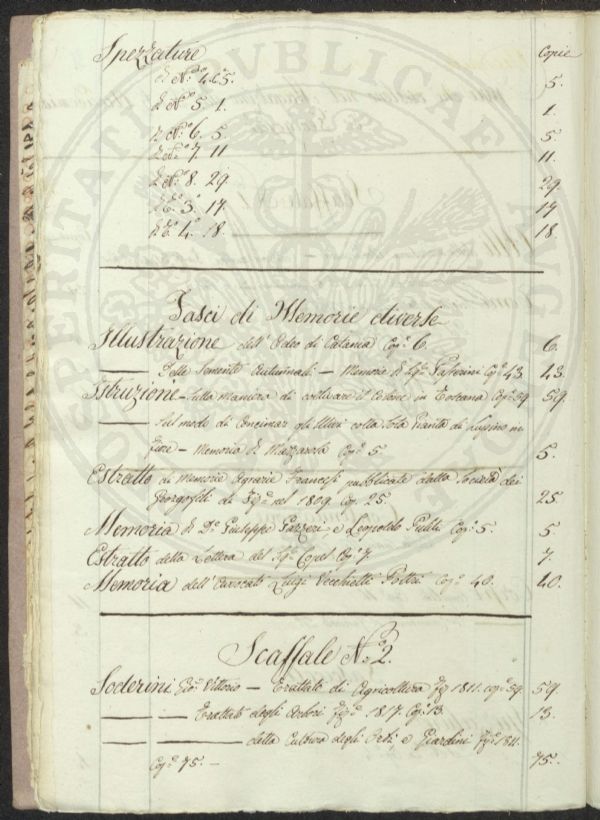 Spezzature Copie
d. N.º 4. 5. 5.
d. N.º 5. 1. 1.
d. N.º 6. 5. 5.
d. N.º 7. 11 11.
d. N.º 8. 29. 29.
d. Tº 3º 17. 17
d. Tº 4º 18. 18.
Fasci di Memorie diverse
Illustrazione dell' Odeo di Catania Copˢ 6. 6.
— Delle Semente Autunnali — Memoria di Paferini Copˢ 43. 43.
Istruzione sulla maniera di coltivare il Cotone in Toscana Copˢ 59 59.
— Sul modo di Concimar gli Ulivi colla sola Pianta di Lupino in
fiore — Memoria di Mazzarosa Copˢ 5. 5.
Estratto di Memorie Agrarie Francesi pubblicate dalla Società dei
Georgofili di Fiʳᵉ nel 1809. Cop. 25. 25.
Memoria di Dº Giuseppe Pazzeri e Leopoldo Copˢ 5. 5.
Estratto della Lettera del Sigʳ Copˢ 7. 7.
Memoria dell' Avvocato Luigi Vecchietti Poltri Copˢ 40. 40.
Scaffale Nº 2.
Soderini Gioº Vittorio — Trattato di Agricoltura Fir 1811. Copˢ 59. 59.
— — Trattato degli Arbori Firᵉ 1817. Copˢ 13. 13.
— — della Cultura degli Orti e Giardini Firᵉ 1811.
Copˢ 75. — 75.